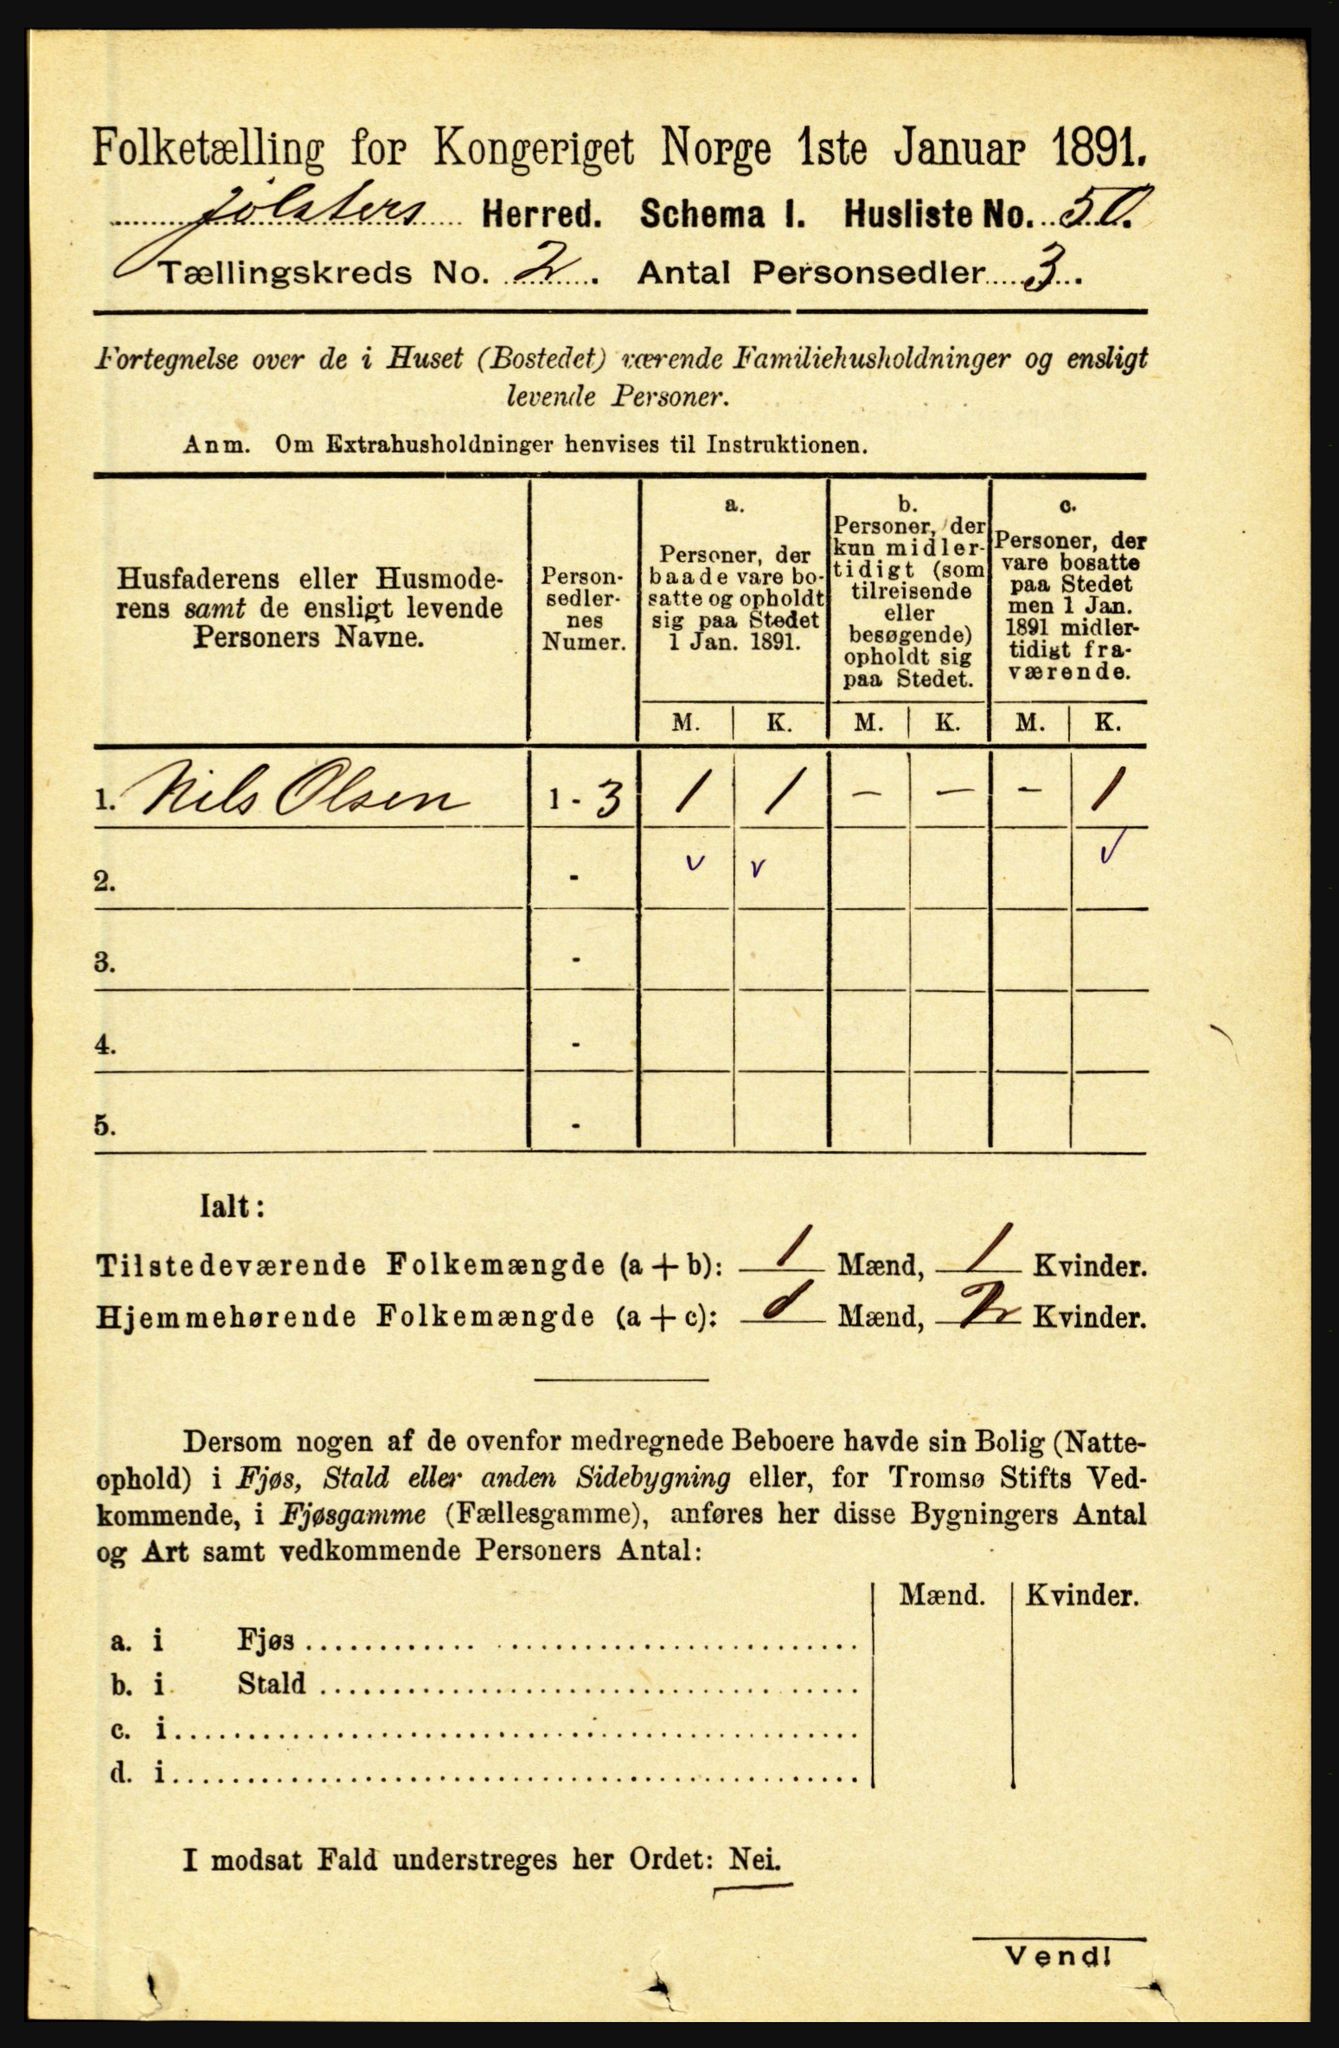 Folketælling for Kongeriget Norge 1ste Januar 1891.
Jølsters Herred. Schema I. Husliste No. 50.
Tællingskreds No. 2. Antal Personsedler 3.
Fortegnelse over de i Huset (Bostedet) værende Familiehusholdninger og ensligt
levende Personer.
Anm. Om Extrahusholdninger henvises til Instruktionen.
Husfaderens eller Husmode-
rens samt de ensligt levende
Personers Navne.
Person-
sedler-
nes
Numer.
a.
Personer, der
baade vare bo-
satte og opholdt
sig paa Stedet
1 Jan. 1891.
b.
Personer, der
kun midler-
tidigt (som
tilreisende
eller
besøgende)
opholdt sig
paa Stedet.
c.
Personer, der
vare bosatte
paa Stedet
men 1 Jan.
1891 midler-
tidigt fra-
værende.
M. K. M. K. M. K.
1. Nils Olsen 1 - 3 1 1 – – – 1
2. - v v v
3. -
4. -
5. -
Ialt:
Tilstedeværende Folkemængde (a + b): 1 Mænd, 1 Kvinder.
Hjemmehørende Folkemængde (a + c): 1 Mænd, 2 Kvinder.
Dersom nogen af de ovenfor medregnede Beboere havde sin Bolig (Natte-
ophold) i Fjøs, Stald eller anden Sidebygning eller, for Tromsø Stifts Ved-
kommende, i Fjøsgamme (Fællesgamme), anføres her disse Bygningers Antal
og Art samt vedkommende Personers Antal:
Mænd. Kvinder.
a. i Fjøs
b. i Stald
c. i
d. i
I modsat Fald understreges her Ordet: Nei.
Vend!